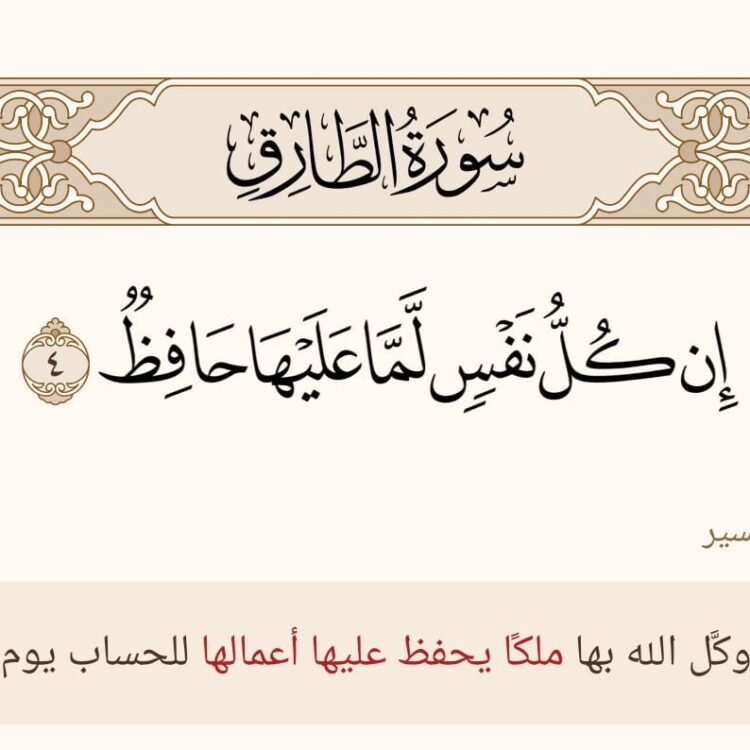 سُورَةُ الطَّارِقِ
إِن كُلُّ نَفْسٍ لَّمَّا عَلَيْهَا حَافِظٌ ٤
سير
وكَّل الله بها ملكًا يحفظ عليها أعمالها للحساب يوم